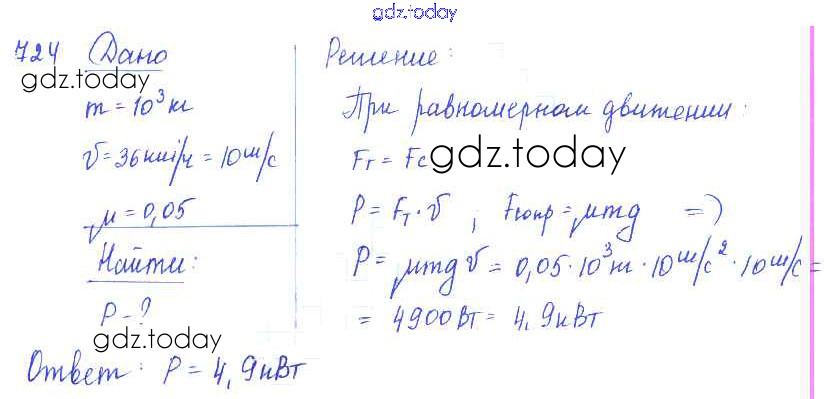 gdz.today
724 Дано
gdz.today
m = 10³ кг
v = 36 км/ч = 10 м/с
μ = 0,05
Найти:
P - ?
gdz.today
Решение:
При равномерном движении:
Fт = Fс
gdz.today
P = Fт · v ; Fсопр = μmg =>
P = μmg v = 0,05 · 10³ кг · 10 м/с² · 10 м/с =
= 4900 Вт = 4,9 кВт
Ответ: P = 4,9 кВт